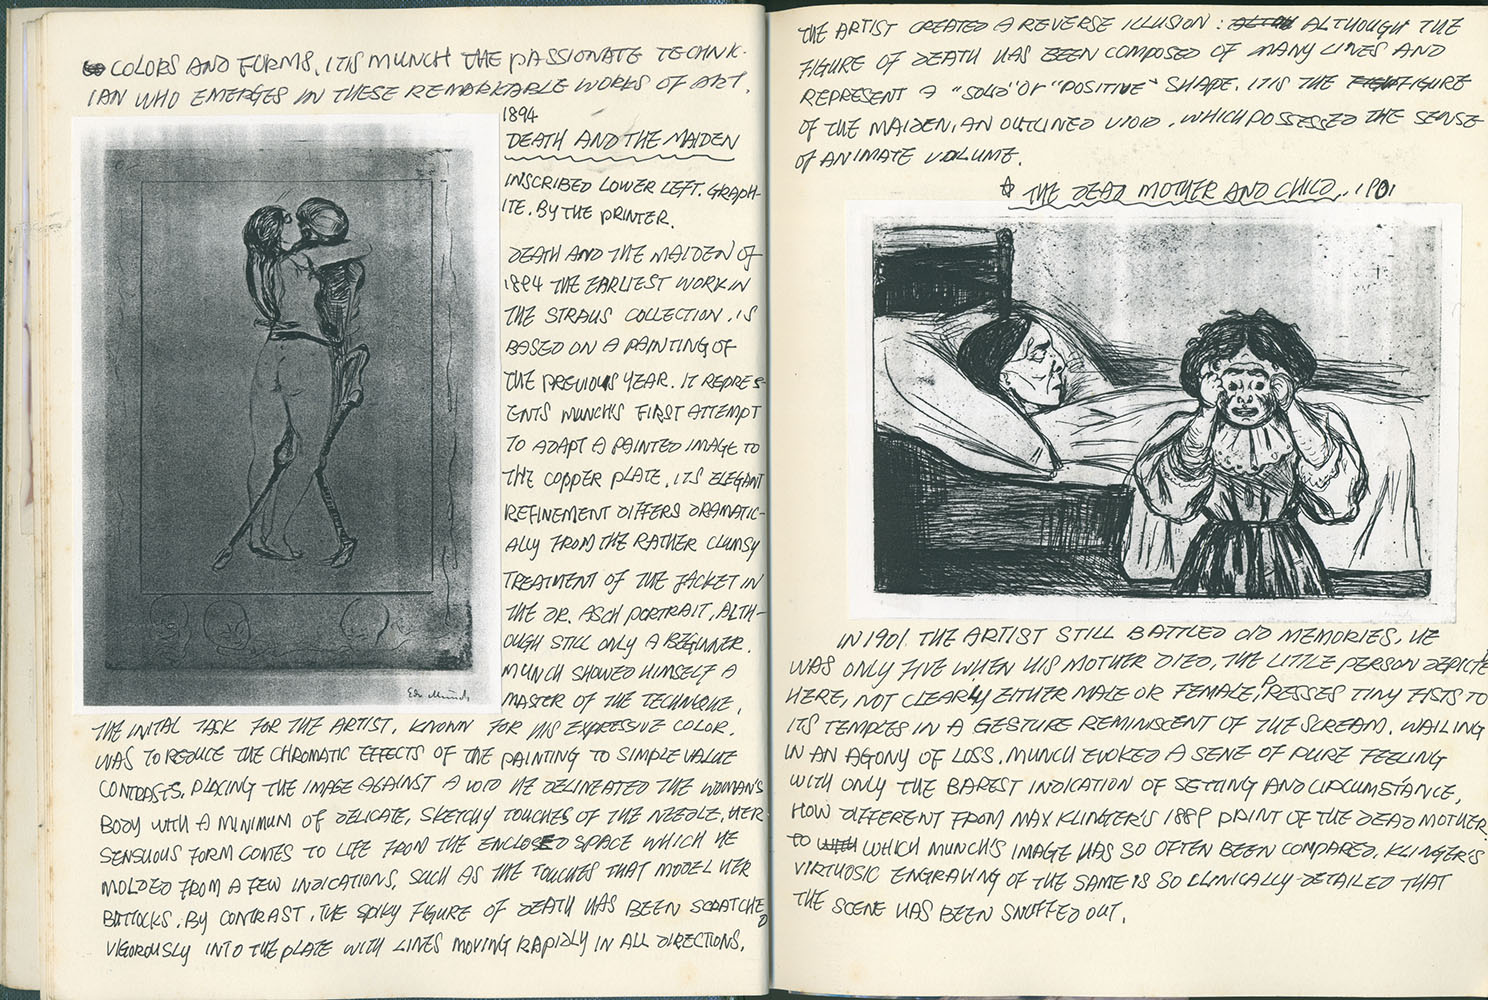 COLORS AND FORMS, IT IS MUNCH THE PASSIONATE TECHNIC-
IAN WHO EMERGES IN THESE REMARKABLE WORKS OF ART.
1894
DEATH AND THE MAIDEN
INSCRIBED LOWER LEFT. GRAPH-
ITE. BY THE PRINTER.
DEATH AND THE MAIDEN OF
1894 THE EARLIEST WORK IN
THE STRAUS COLLECTION, IS
BASED ON A PAINTING OF
THE PREVIOUS YEAR. IT REPRES-
ENTS MUNCH'S FIRST ATTEMPT
TO ADAPT A PAINTED IMAGE TO
THE COPPER PLATE. ITS ELEGANT
REFINEMENT DIFFERS DRAMATIC-
ALLY FROM THE RATHER CLUMSY
TREATMENT OF THE JACKET IN
THE DR. ASCH PORTRAIT, ALTH-
OUGH STILL ONLY A BEGINNER.
MUNCH SHOWED HIMSELF A
MASTER OF THE TECHNIQUE.
Edv Munch
THE INITAL TASK FOR THE ARTIST, KNOWN FOR HIS EXPRESSIVE COLOR.
WAS TO REDUCE THE CHROMATIC EFFECTS OF THE PAINTING TO SIMPLE VALUE
CONTRASTS. PLACING THE IMAGE AGAINST A VOID HE DELINEATED THE WOMAN'S
BODY WITH A MINIMUM OF DELICATE, SKETCHY TOUCHES OF THE NEEDLE. HER
SENSUOUS FORM COMES TO LIFE FROM THE ENCLOSED SPACE WHICH HE
MOLDED FROM A FEW INDICATIONS, SUCH AS THE TOUCHES THAT MODEL HER
BUTTOCKS. BY CONTRAST, THE SPIKY FIGURE OF DEATH HAS BEEN SCRATCHED
VIGOROUSLY INTO THE PLATE WITH LINES MOVING RAPIDLY IN ALL DIRECTIONS.
THE ARTIST CREATED A REVERSE ILLUSION: ALTHOUGH THE
FIGURE OF DEATH HAS BEEN COMPOSED OF MANY LINES AND
REPRESENT A "SOLID" OR "POSITIVE" SHAPE. IT IS THE FIGURE
OF THE MAIDEN, AN OUTLINED VOID, WHICH POSSESSED THE SENSE
OF ANIMATE VOLUME.
THE DEAD MOTHER AND CHILD. 1901
IN 1901 THE ARTIST STILL BATTLED OLD MEMORIES. HE
WAS ONLY FIVE WHEN HIS MOTHER DIED, THE LITTLE PERSON DEPICTE
HERE, NOT CLEARLY EITHER MALE OR FEMALE, PRESSES TINY FISTS TO
ITS TEMPLES IN A GESTURE REMINISCENT OF THE SCREAM. WAILING
IN AN AGONY OF LOSS. MUNCH EVOKED A SENE OF PURE FEELING
WITH ONLY THE BAREST INDICATION OF SETTING AND CIRCUMSTANCE,
HOW DIFFERENT FROM MAX KLINGER'S 1889 PRINT OF THE DEAD MOTHER.
TO WHICH MUNCH'S IMAGE HAS SO OFTEN BEEN COMPARED. KLINGER'S
VIRTUOSIC ENGRAVING OF THE SAME IS SO CLINICALLY DETAILED THAT
THE SCENE HAS BEEN SNUFFED OUT.